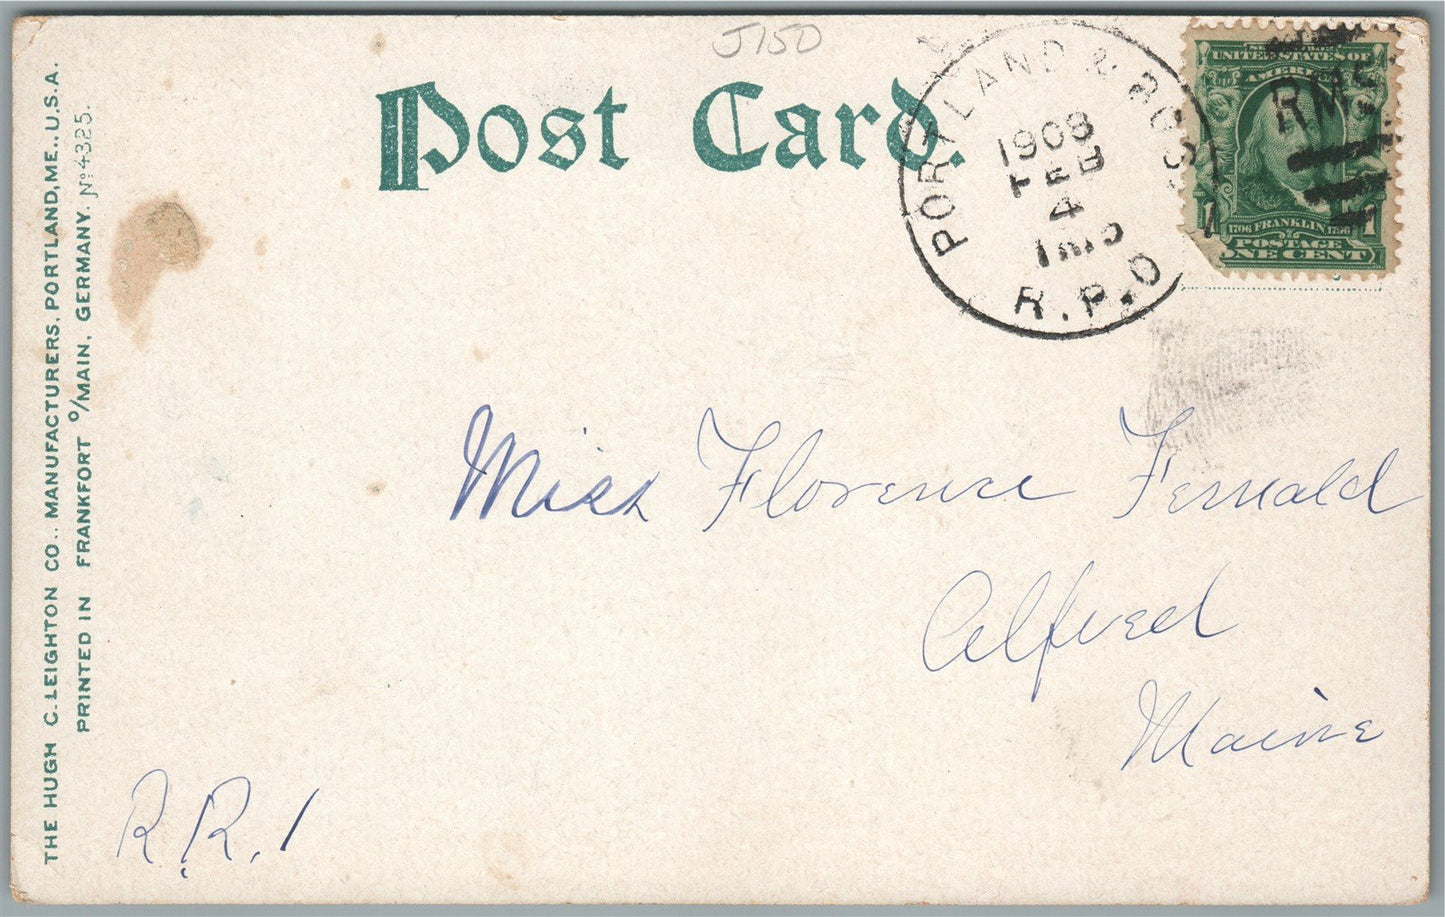 J150
Post Card.
PORTLAND & BOS
1908
FEB
4
R.P.O
RMS
UNITED STATES OF
AMERICA
1706 FRANKLIN 1790
POSTAGE
ONE CENT
1
THE HUGH C. LEIGHTON CO., MANUFACTURERS, PORTLAND, ME., U.S.A.
PRINTED IN FRANKFORT O/MAIN, GERMANY. No 4325.
Miss Florence Fernald
Alfred
Maine
R.R. 1